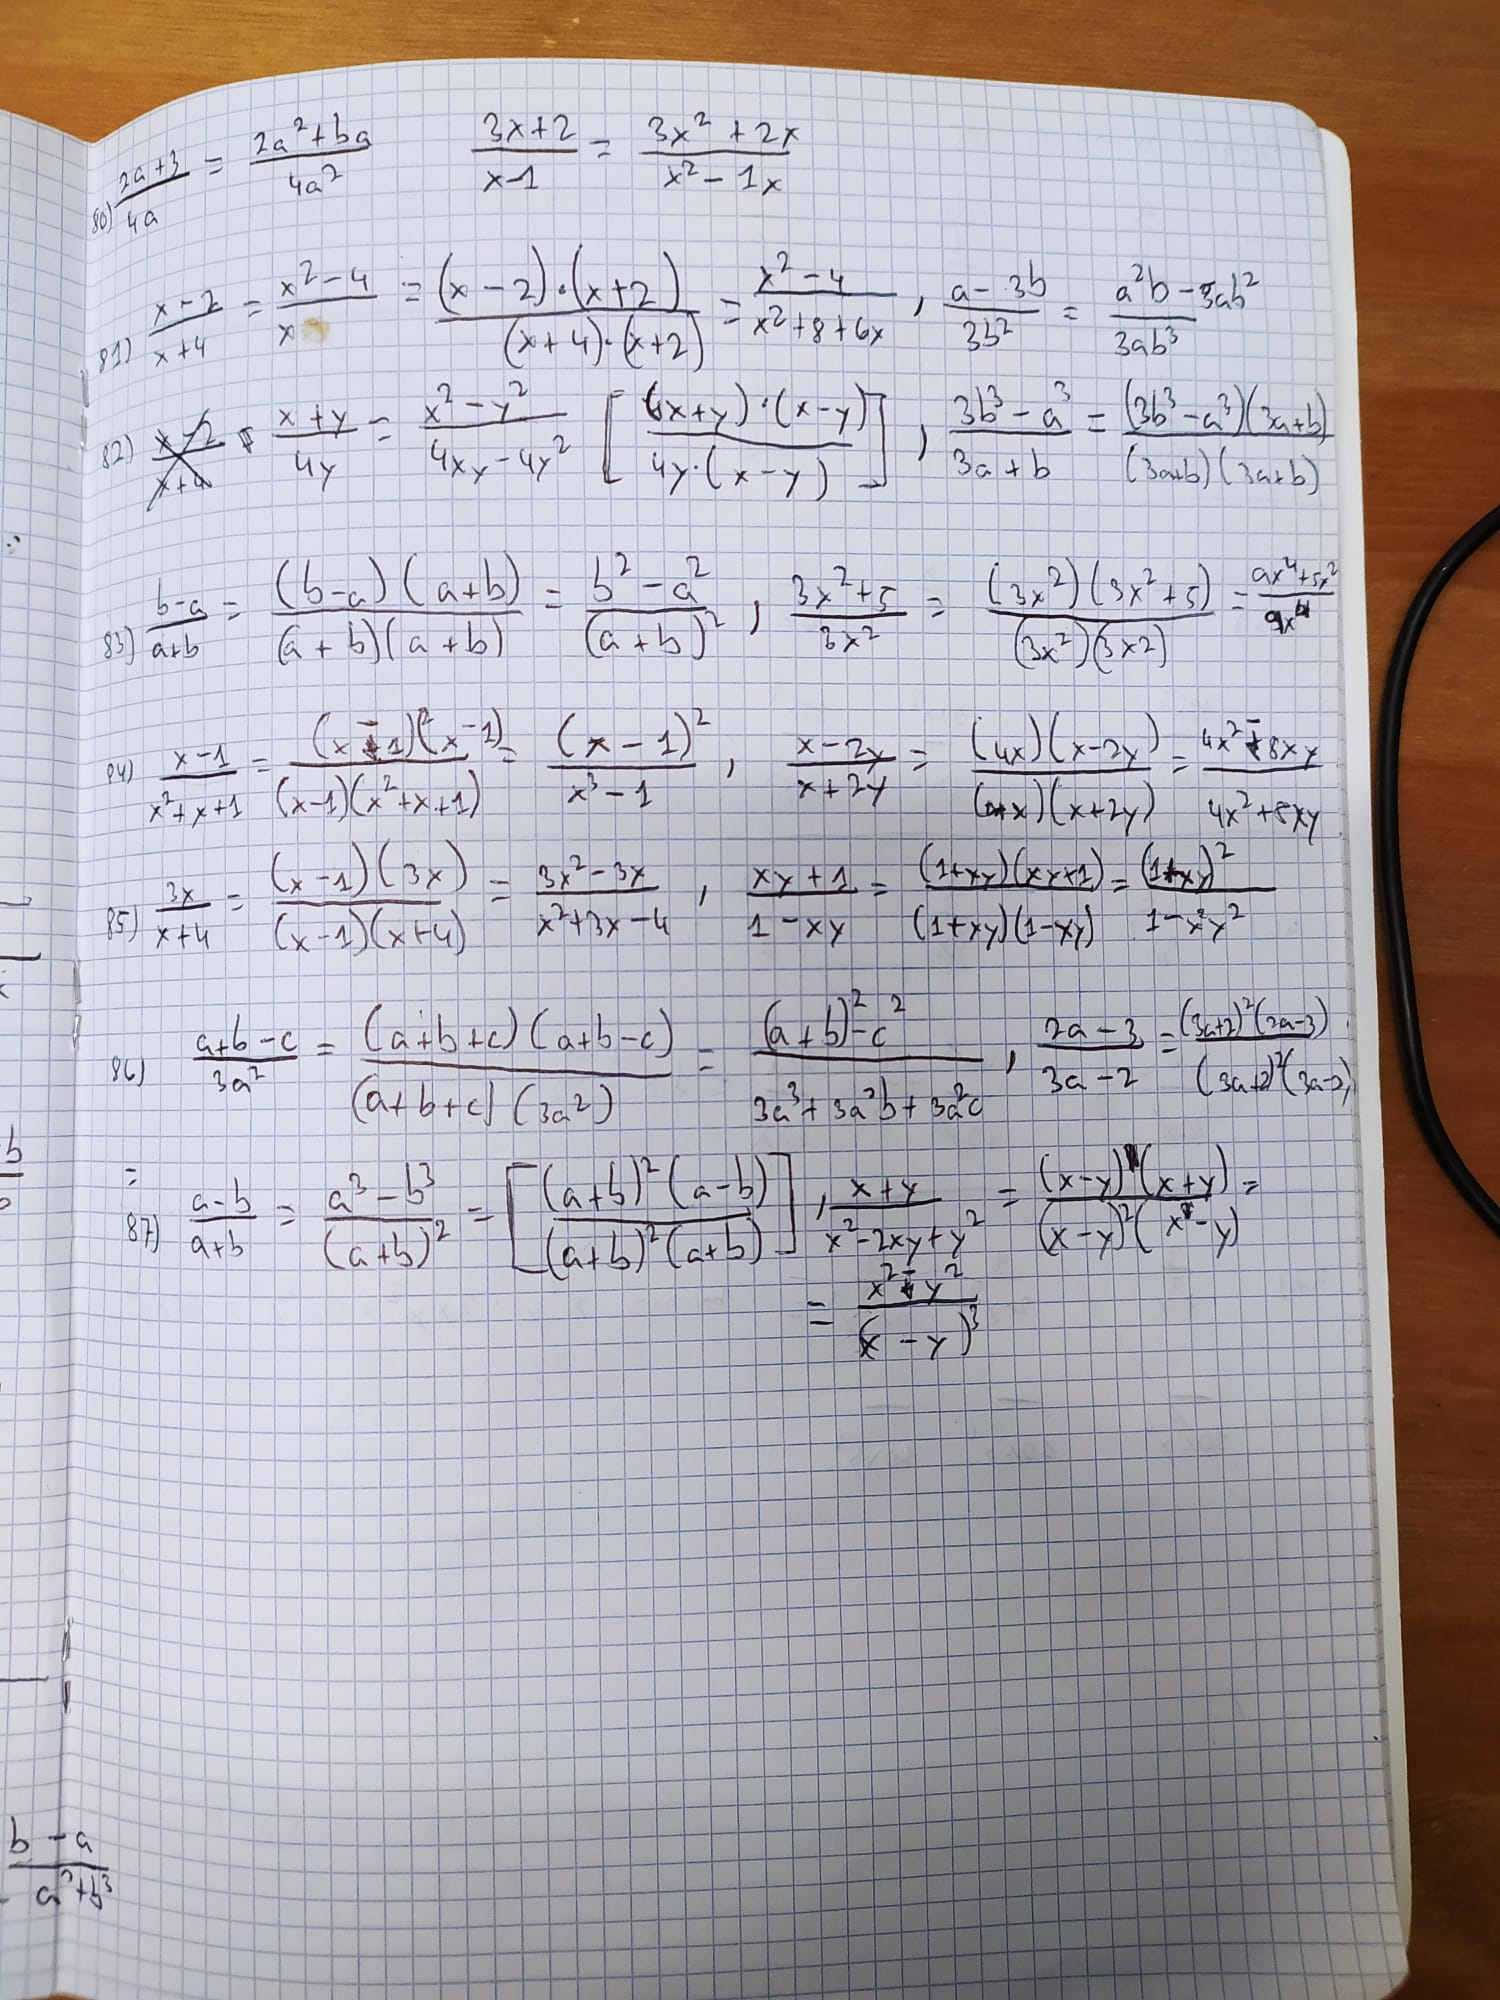 80) (2a+3)/(4a) = (2a²+ba)/(4a²)   (3x+2)/(x-1) = (3x²+2x)/(x²-1x)
81) (x-2)/(x+4) = (x²-4)/x = ((x-2)·(x+2))/((x+4)·(x+2)) = (x²-4)/(x²+8+6x) , (a-3b)/(3b²) = (a²b-3ab²)/(3ab³)
82) (x+y)/(4y) = (x²-y²)/(4xy-4y²) [((x+y)·(x-y))/(4y·(x-y))] , (3b³-a³)/(3a+b) = ((3b³-a³)(3a+b))/((3a+b)(3a+b))
83) (b-a)/(a+b) = ((b-a)(a+b))/((a+b)(a+b)) = (b²-a²)/(a+b)² , (3x²+5)/(3x²) = ((3x²)(3x²+5))/((3x²)(3x2)) = (ax⁴+5x²)/(9x⁴)
84) (x-1)/(x²+x+1) = ((x-1)(x-1))/((x-1)(x²+x+1)) = (x-1)²/(x³-1) , (x-2y)/(x+2y) = ((4x)(x-2y))/((4x)(x+2y)) = (4x²-8xy)/(4x²+8xy)
85) (3x)/(x+4) = ((x-1)(3x))/((x-1)(x+4)) = (3x²-3x)/(x²+3x-4) , (xy+1)/(1-xy) = ((1+xy)(xy+1))/((1+xy)(1-xy)) = (1+xy)²/(1-x²y²)
86) (a+b-c)/(3a²) = ((a+b+c)(a+b-c))/((a+b+c)(3a²)) = ((a+b)²-c²)/(3a³+3a²b+3a²c) , (2a-3)/(3a-2) = ((3a+2)²(2a-3))/((3a+2)²(3a-2)
=
87) (a-b)/(a+b) = (a³-b³)/(a+b)² = [((a+b)²(a-b))/((a+b)²(a+b))] , (x+y)/(x²-2xy+y²) = ((x-y)(x+y))/((x-y)²(x-y)) =
= (x²-y²)/(x-y)³
b-a
a³+b³